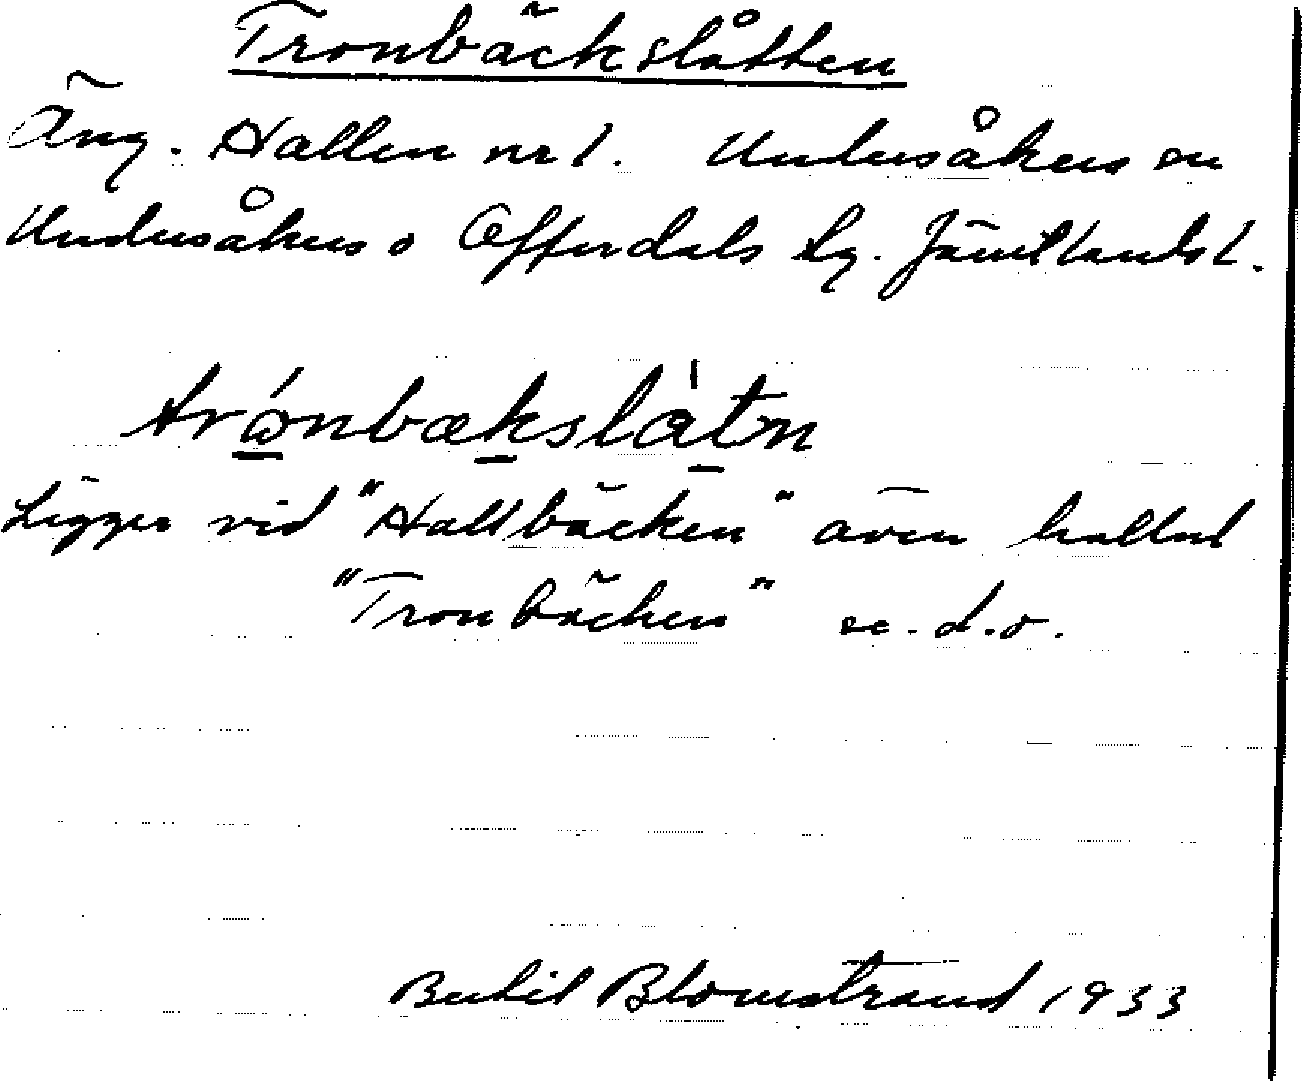 Tronbäckslåtten
Äng. Hallen nr 1. Undersåkers sn
Undersåkers o Offerdals tg. Jämtlands l.
trónbækslåtn
Ligger vid "Hallbäcken" även kallad
"Tronbäcken" se. d.o.
Bertil Blomstrand 1933